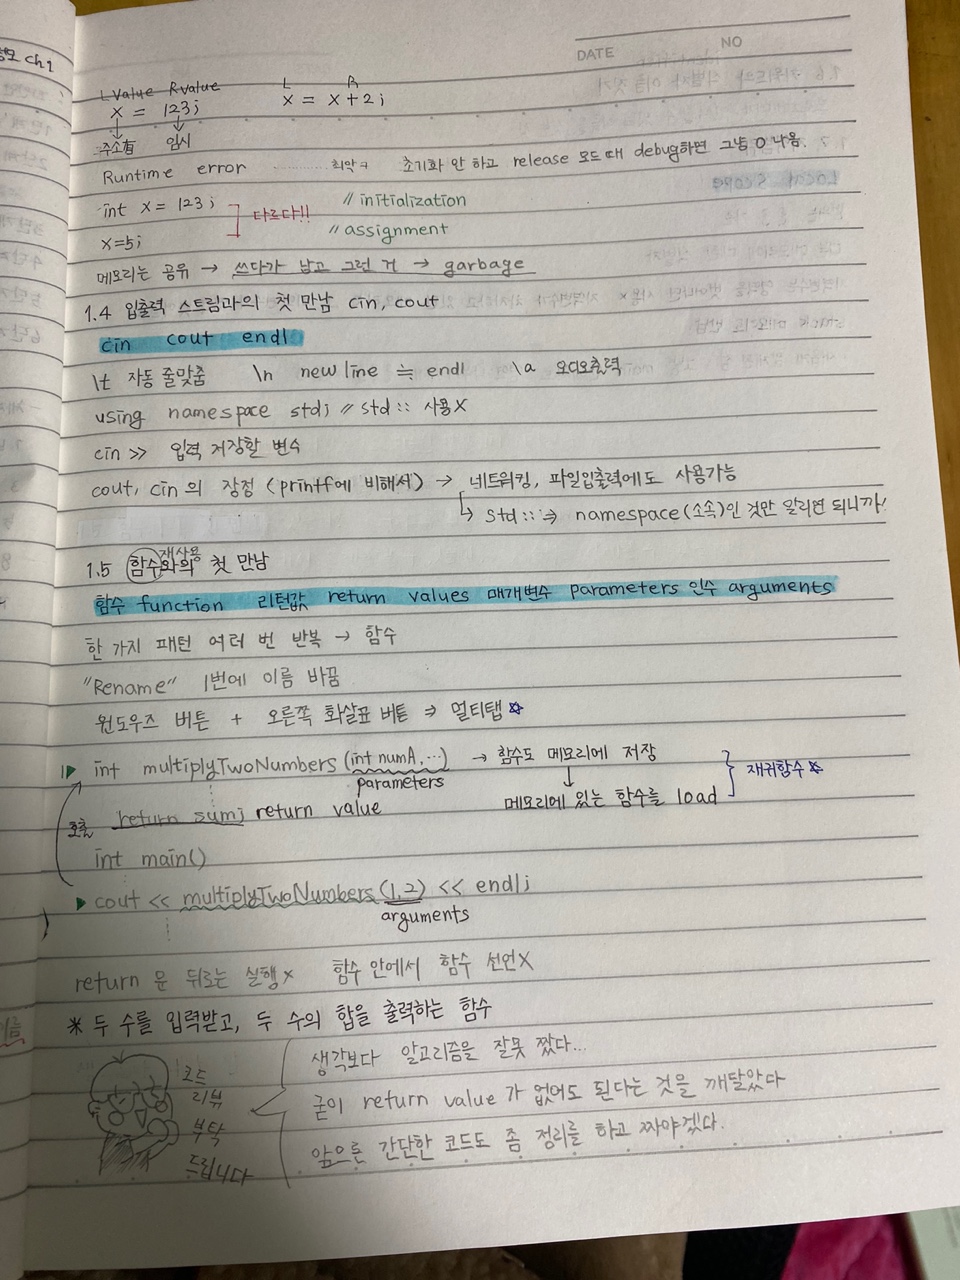 DATE NO
L value R value L R
x = 123; x = x+2;
주소有 임시
Runtime error 최악ㅋ 초기화 안 하고 release 모드 때 debug하면 그냥 0 나옴.
int x = 123; // initialization
다르다!!
x=5; // assignment
메모리는 공유 → 쓰다가 남고 그런 거 → garbage
1.4 입출력 스트림과의 첫 만남 cin, cout
cin cout endl
\t 자동 줄맞춤 \n new line ≒ endl \a 오디오출력
using namespace std; // std:: 사용X
cin >> 입력 저장할 변수
cout, cin의 장점 (printf에 비해서) → 네트워킹, 파일입출력에도 사용가능
↳ std:: ⇒ namespace(소속)인 것만 알리면 되니까!
재사용
1.5 함수와의 첫 만남
함수 function 리턴값 return values 매개변수 parameters 인수 arguments
한 가지 패턴 여러 번 반복 → 함수
"Rename" 1번에 이름 바꿈
윈도우즈 버튼 + 오른쪽 화살표 버튼 ⇒ 멀티탭 ☆
int multiplyTwoNumbers (int numA, ...) → 함수도 메모리에 저장
parameters ↓ 재귀함수 ☆
return sum; return value 메모리에 있는 함수를 load
호출
int main()
cout << multiplyTwoNumbers (1, 2) << endl;
arguments
return 문 뒤로는 실행X 함수 안에서 함수 선언X
* 두 수를 입력받고, 두 수의 합을 출력하는 함수
코드
리뷰
부탁
드립니다
생각보다 알고리즘을 잘못 짰다...
굳이 return value가 없어도 된다는 것을 깨달았다
앞으론 간단한 코드도 좀 정리를 하고 짜야겠다.